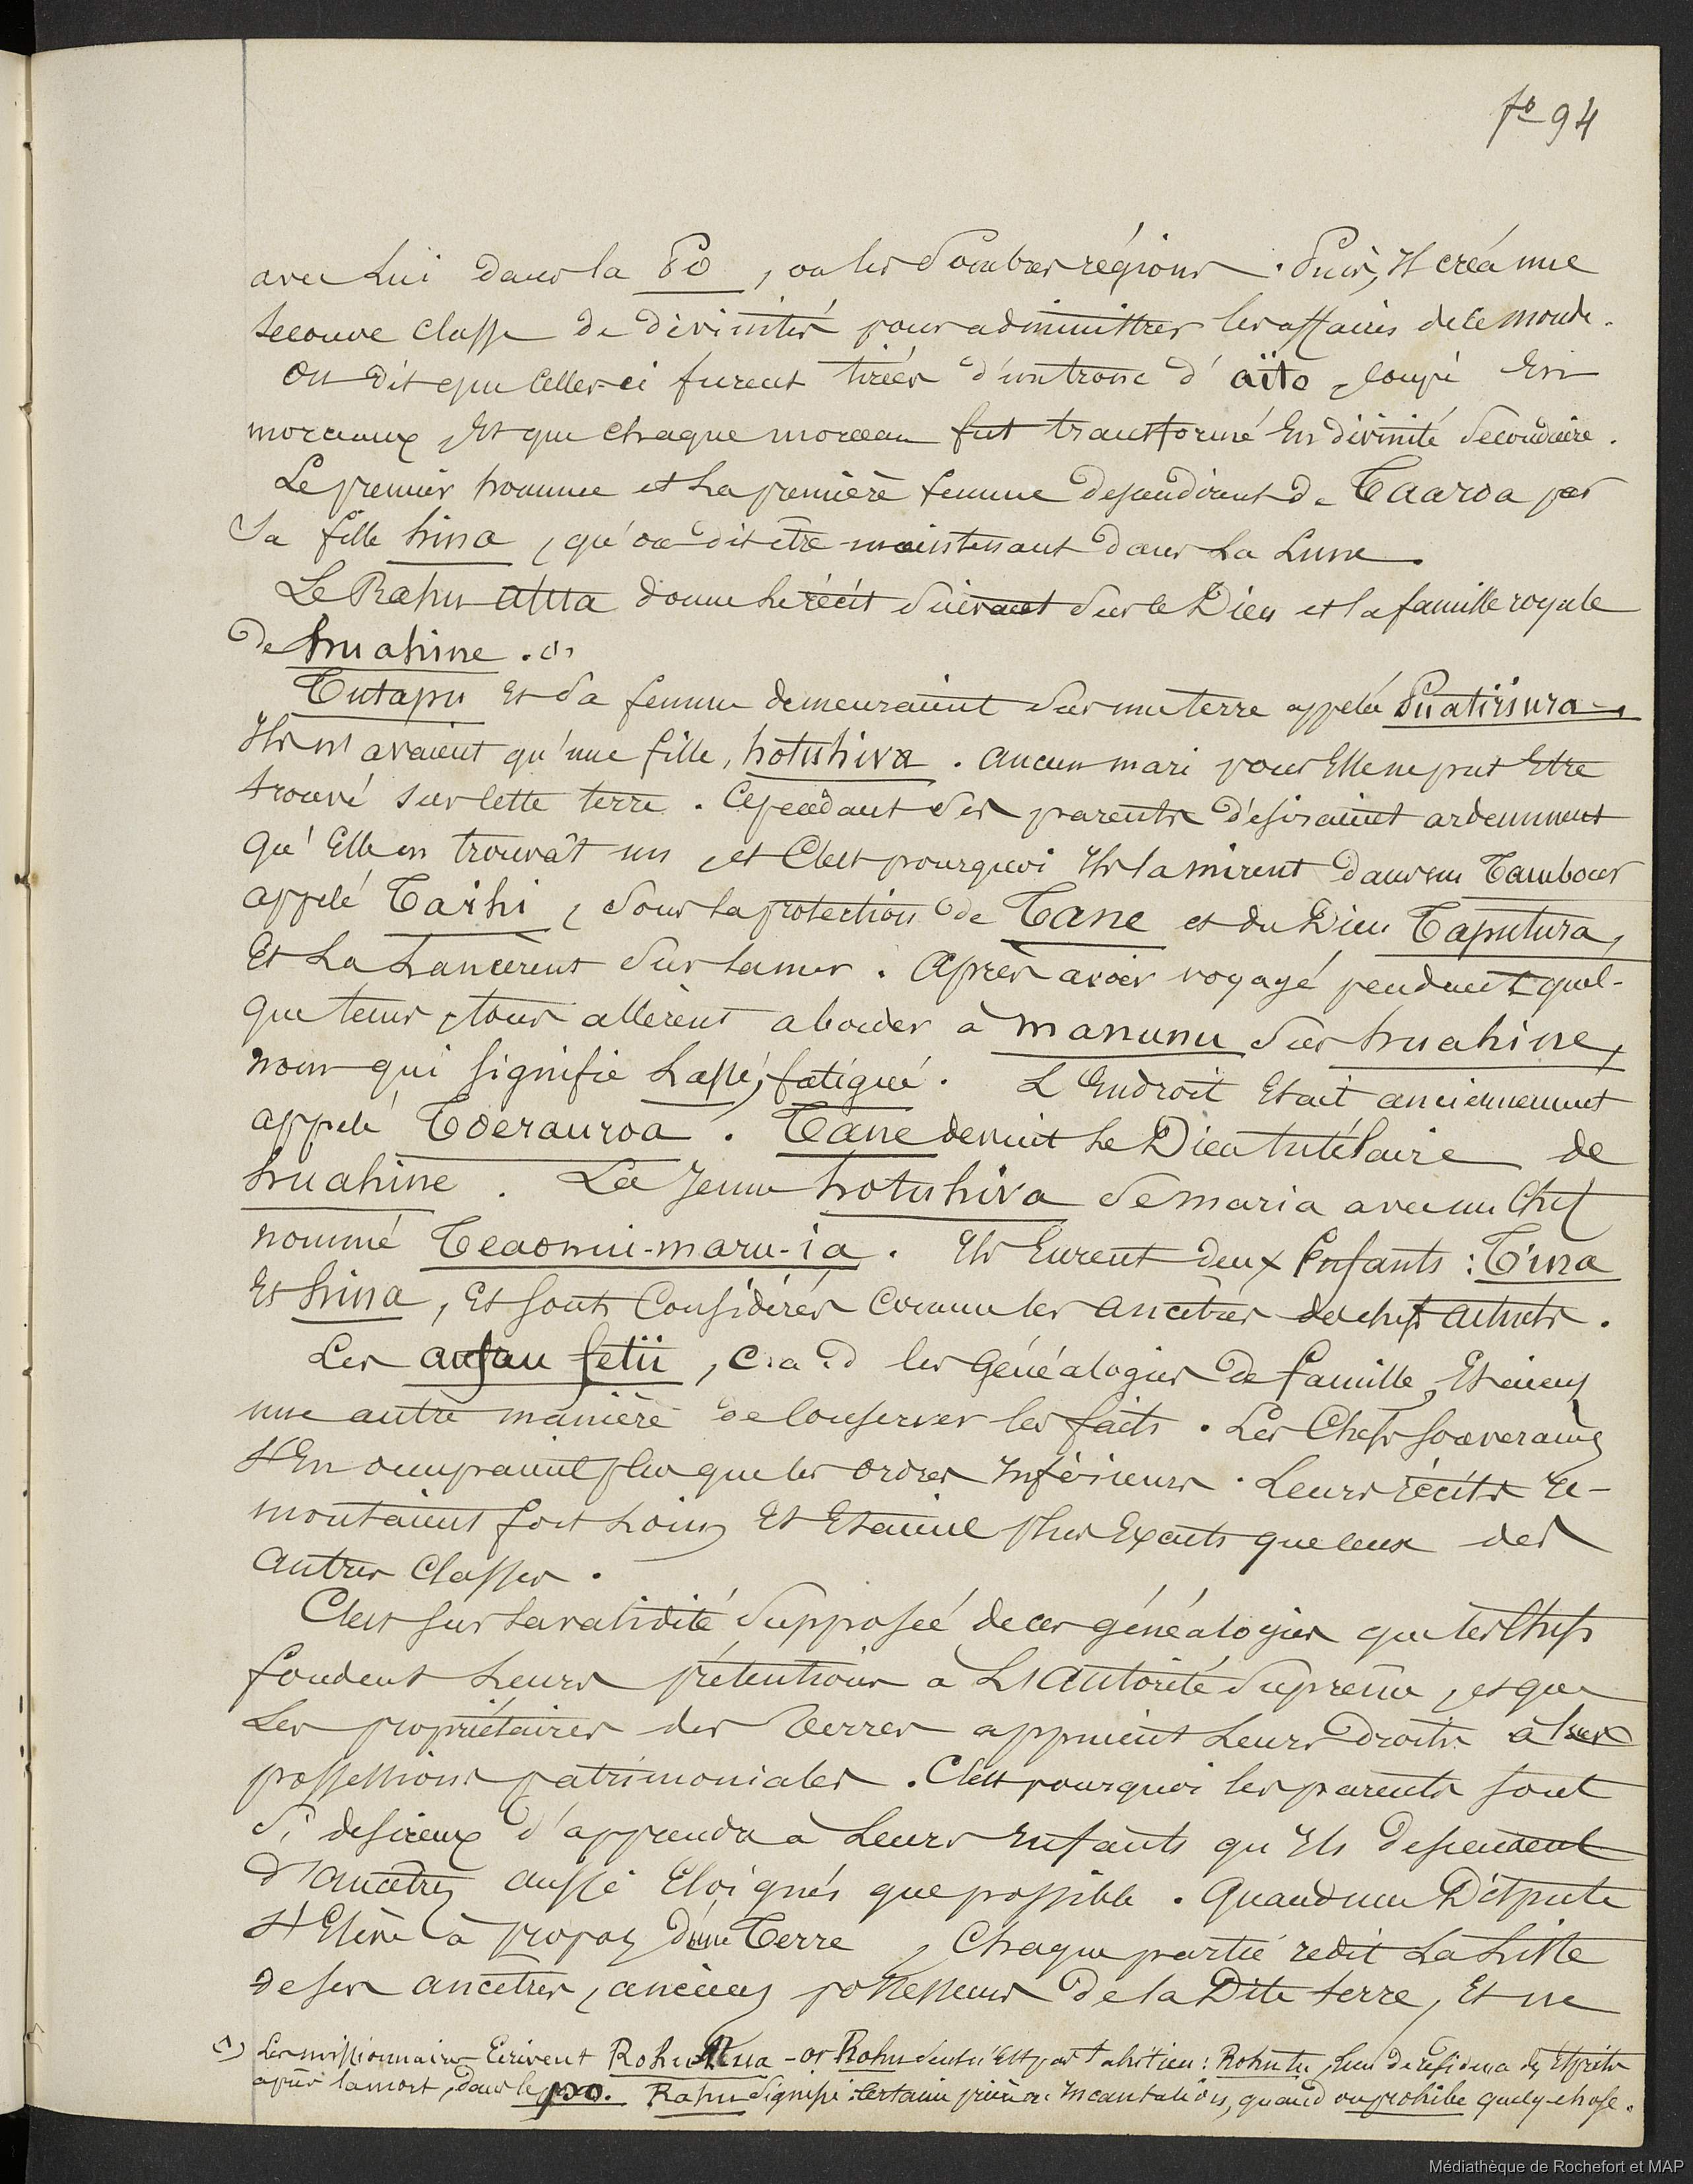 fo 94
avec Lui dans la Po, ou les Sombres régions. Puis, Il créa une
seconde classe de divinités pour administrer les affaires de ce monde.
On dit que celles-ci furent tirées d'un tronc d'aïto, coupé En
morceaux, Et que chaque morceau fut transformé En divinité Secondaire.
Le premier homme et La première femme descendirent de Taaroa par
Sa fille hina, qu'on dit être maintenant dans La Lune.
Le Rahu atua donne le récit suivant Sur le Dieu et la famille royale
de huahine. (1)
Tutapu Et Sa femme demeuraient Sur une terre appelée Puatiriura.
Ils n'avaient qu'une fille, hotuhiva. Aucun mari pour Elle ne put Etre
trouvé sur cette terre. Cependant Ses parents désiraient ardemment
qu'Elle en trouvât un, et C'est pourquoi Ils la mirent dans un Tambour
appelé Taihi, Sous la protection de Tane et du Dieu Taputura,
Et La Lancèrent Sur la mer. Après avoir voyagé pendant quel-
que tems, tous allèrent aborder à manunu Sur huahine,
nom qui signifie Lassé, fatigué. L'Endroit Etait anciennement
appelé Toerauroa. Tane devint Le Dieu tutélaire de
huahine. La Jeune hotuhiva Se maria avec un Chef
nommé Teaonui-maru-ia. Ils Eurent deux Enfants : Tina
Et hina, Et sont Considérés comme les ancêtres des chefs actuels.
Les aufau fetii, c.a.d les Généalogies de famille, Etaient
une autre manière de Conserver les faits. Les Chefs souverains
s'En occupaient plus que les ordres Inférieurs. Leurs récits re-
montaient fort Loin, Et Etaient plus Exacts que ceux des
autres Classes.
C'est sur La validité Supposée de ces généalogies que les Chefs
fondent Leurs prétentions à L'Autorité Suprême, et que
Les propriétaires des Terres appuient Leurs Droits à leurs
possessions patrimoniales. C'est pourquoi les parents sont
Si desireux d'apprendre à Leurs Enfants qu'Ils descendent
d'ancêtres aussi Eloignés que possible. Quand une Dispute
s'Elève à propos d'une Terre, Chaque partie redit La Liste
de ses ancêtres, anciens possesseurs de la Dite terre, Et ne
(1) Les missionnaires Ecrivent Rohu Atua - or Rohu seul n'Est pas Tahitien : Rohutu, Lieu de résidence des Esprits
après la mort, dans le po. Rahu Signifie certaines prières. Incantations, quand on prohibe quelq-chose.
Médiathèque de Rochefort et MAP